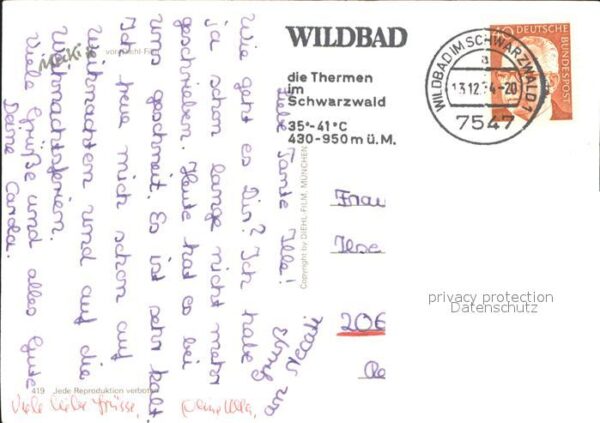 WILDBAD
die Thermen
im
Schwarzwald
35°-41°C
430-950 m ü.M.
WILDBAD IM SCHWARZWALD 1
a
13.12.74-20
7547
40
DEUTSCHE
BUNDESPOST
Liebe Tante Ille!
Wie geht es Dir? Ich habe
ja schon lange nicht mehr
geschrieben. Heute hat es bei
uns geschneit. Es ist sehr kalt.
Ich freue mich schon auf
Weihnachten und auf die
Weihnachtsferien.
Viele Grüße und alles Gute
Deine Carola.
an
Viele liebe Grüsse,
Frau
Ilse
206
Copyright by DIEHL-FILM, MÜNCHEN
419 Jede Reproduktion verboten
privacy protection
Datenschutz